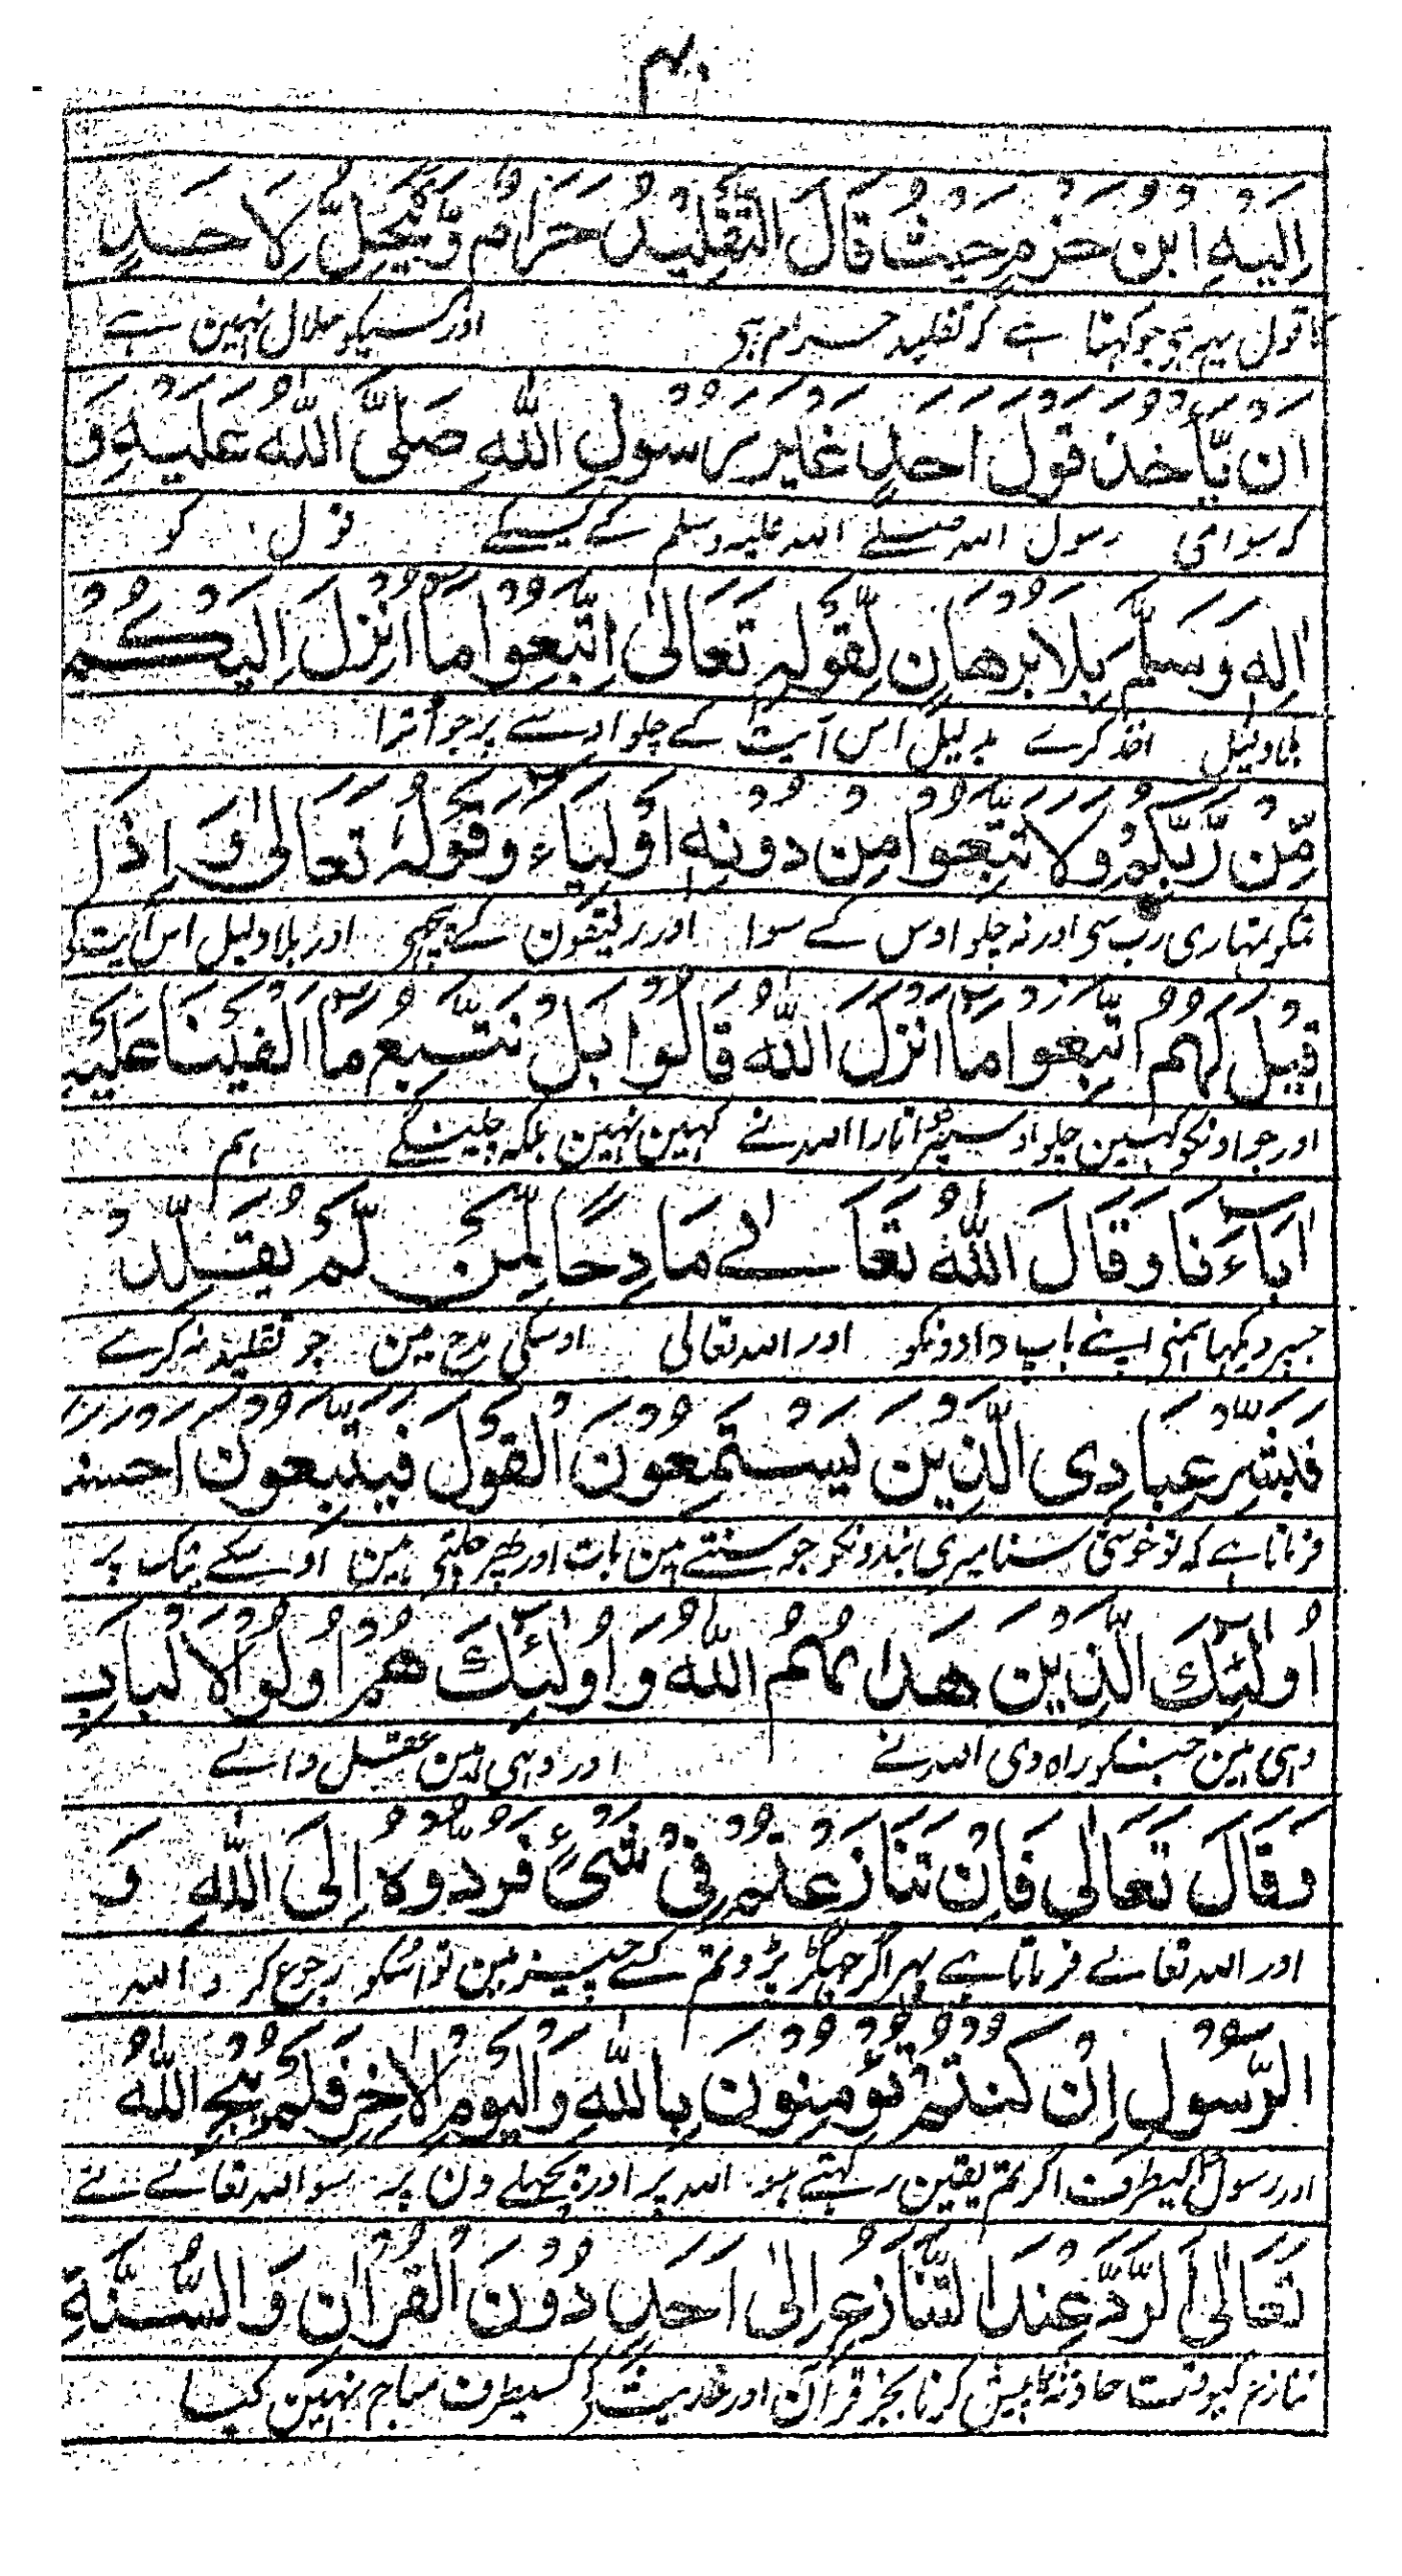 ۴۰
اِلَيْهِ ابْنُ حَزْمٍ حَيْثُ قَالَ التَّقْلِيْدُ حَرَامٌ وَّلَا يَحِلُّ لِاَحَدٍ
کا قول یہہ ہی جو کہتا ہے کہ تقلید حرام ہی اور کسیکو حلال نہین ہے
اَنْ يَّأْخُذَ قَوْلَ اَحَدٍ غَيْرِ رَسُوْلِ اللّٰهِ صَلَّى اللّٰهُ عَلَيْهِ وَ
کہ سوامی رسول اللہ صلے اللہ علیہ وسلم کے کسیکے قول کو
اٰلِهٖ وَسَلَّمَ بِلَا بُرْهَانٍ لِّقَوْلِهٖ تَعَالٰى اِتَّبِعُوْا مَا اُنْزِلَ اِلَيْكُمْ
بلا دلیل اخذ کرے بدلیل اس آیت کے چلو اوسے پر جو اُترا
مِّنْ رَّبِّكُمْ وَلَا تَتَّبِعُوْا مِنْ دُوْنِهٖ اَوْلِيَاءَ وَقَوْلِهٖ تَعَالٰى وَ اِذَا
تمکو تمہاری رب سی اور نہ چلو اوس کے سوا اور رفیقون کے پیچہی اور بلا دلیل اس آیت کی
قِيْلَ لَهُمُ اتَّبِعُوْا مَا اَنْزَلَ اللّٰهُ قَالُوْا بَلْ نَتَّبِعُ مَا اَلْفَيْنَا عَلَيْهِ
اور جو اونکو کہین چلو اوسپر جو اتارا اللہ نے کہین نہین بلکہ چلینگے ہم
اٰبَاءَنَا وَقَالَ اللّٰهُ تَعَالٰے مَادِحًا لِّمَنْ لَّمْ يُقَلِّدْ
جسپر دیکہا ہمنی اپنے باپ دادونکو اور اللہ تعالی اوسکی مدح مین جو تقلید نہ کرے
فَبَشِّرْ عِبَادِي الَّذِيْنَ يَسْتَمِعُوْنَ الْقَوْلَ فَيَتَّبِعُوْنَ اَحْسَنَهٗ
فرماتا ہے کہ تو خوشی سنا میری بندونکو جو سنتے ہین بات اور پھر چلتی ہین اوسکے نیک پر
اُولٰئِكَ الَّذِيْنَ هَدَاهُمُ اللّٰهُ وَاُولٰئِكَ هُمْ اُولُوا الْاَلْبَابِ
وہی ہین جنکو راہ دی اللہ نے اور وہی ہین عقل والے
وَقَالَ تَعَالٰى فَاِنْ تَنَازَعْتُمْ فِيْ شَيْءٍ فَرُدُّوْهُ اِلَى اللّٰهِ وَ
اور اللہ تعالے فرماتا ہے پہر اگر جہگڑ پڑو تم کسے چیز مین تو اسکو رجوع کرو اللہ
الرَّسُوْلِ اِنْ كُنْتُمْ تُؤْمِنُوْنَ بِاللّٰهِ وَالْيَوْمِ الْاٰخِرِ فَلَمْ يُبِحِ اللّٰهُ
اور رسول کیطرف اگر تم یقین رکہتے ہو اللہ پر اور پچہلے دن پر سو اللہ تعالے نے
تَعَالٰى الرَّدَّ عِنْدَ التَّنَازُعِ اِلٰى اَحَدٍ دُوْنَ الْقُرْاٰنِ وَالسُّنَّةِ
تنازع کیوقت حادثہ کا پیش کرنا بجز قرآن اور حدیث کے کسیطرف مباح نہین کیا